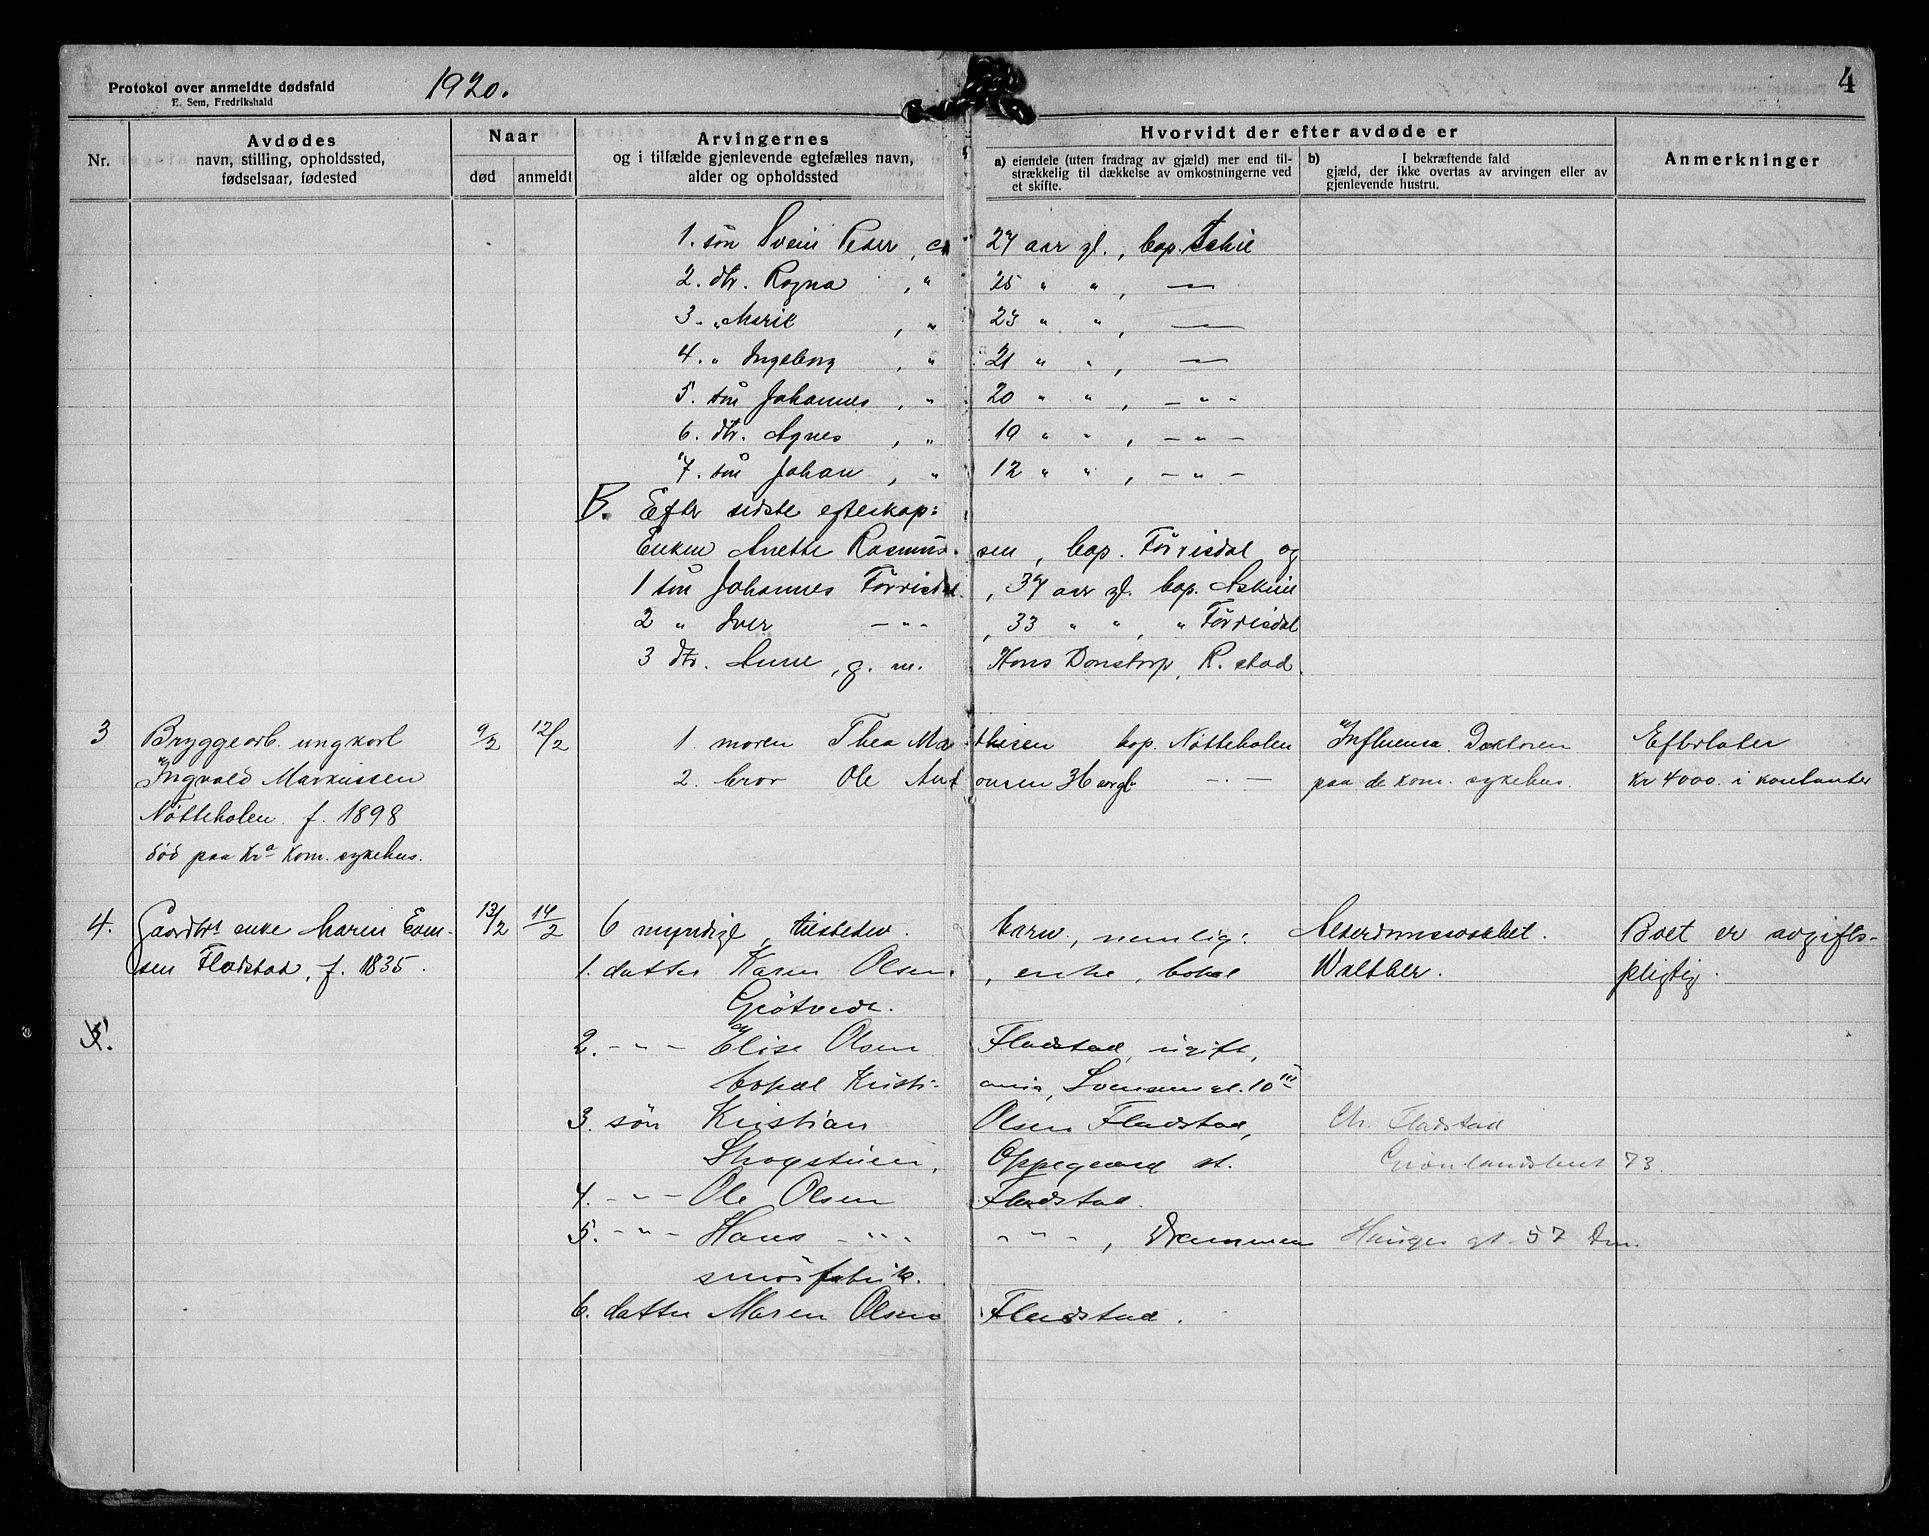 Protokol over anmeldte dødsfald
E. Sem, Fredrikshald
1920.
4
Nr.
Avdødes
navn, stilling, opholdssted,
fødselsaar, fødested
Naar
død
anmeldt
Arvingernes
og i tilfælde gjenlevende egtefælles navn,
alder og opholdssted
Hvorvidt der efter avdøde er
a) eiendele (uten fradrag av gjæld) mer end til-
strækkelig til dækkelse av omkostningerne ved
et skifte.
b) I bekræftende fald
gjæld, der ikke overtas av arvingen eller av
gjenlevende hustru.
Anmerkninger
1. søn Svein Peder, ca 27 aar gl., bop. Askie
2. dtr. Ragna , " 25 " " , —
3. " Marie , " 23 " " , —
4. " Ingeborg , " 21 " " , —
5. søn Johannes , " 20 " " , — " —
6. dtr. Agnes , " 19 " " , — " —
7. søn Johan , " 12 " " , — " —
B. Efter sidste egteskap:
Enken Anette Rasmus-sen, bop. Førrisdal og
1 søn Johannes Førrisdal, 37 aar gl. bop. Askim
2 " Iver — " — , 33 " " , " Førrisdal
3 dtr. Anne, g. m. Hans Donstorp, R.stad.
3 Bryggearb. ungkarl 9/2 12/2 1. moren Thea Mathisen bop. Nøtteholen "Influensa. Doktoren Efterlater
Ingvald Markussen 2. bror Ole Antonsen 36 aar gl. — . — paa de kom. sykehus. Kr 4000. i kontanter
Nøtteholen f. 1898
død paa Kra kom. sykehus.
4. Gaardbr. enke Maren Even- 13/2 14/2 6 myndige, tilstedev. barn, nemlig: Alderdomssvakhet. Boet er avgifts-
sen Fladstad, f. 1835. 1. datter Karen Olsen, enke, bopæl Walther. pligtig.
Grøtvedt.
5. 2. — " — Elise Olsen Fladstad, ugift,
bopæl Kristi-ania, Svensengt. 10 III
3. søn Kristian Olsen Fladstad, Chr. Fladstad
Skogstuen, Oppegaard st. Grønlandsleret 73.
4. — " — Ole Olsen Fladstad.
5. — " — Hans — " — — " — , Drammen Hauges gt. 57 Dm.
smørfabrik.
6. datter Maren Olsen Fladstad.